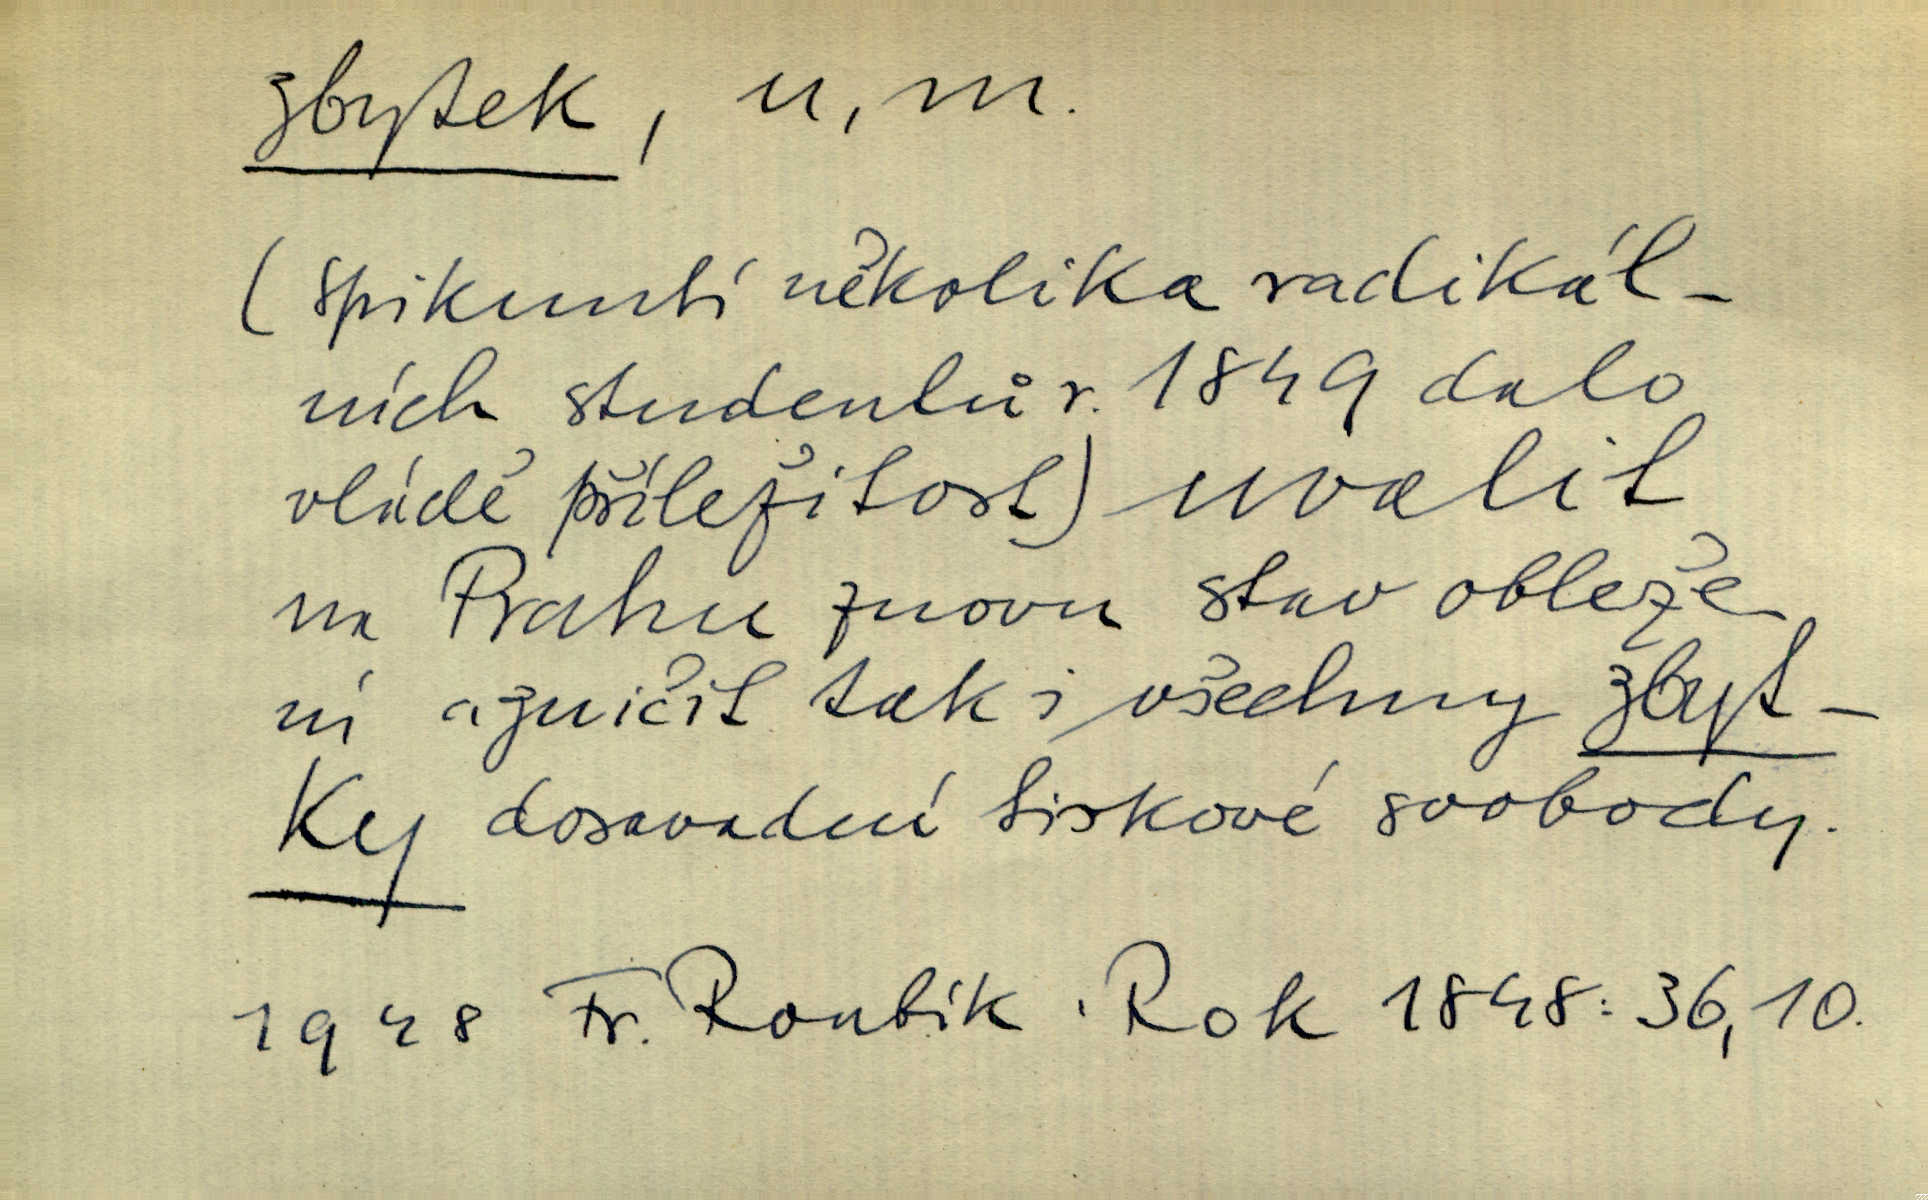 zbytek, u, m.
(spiknutí několika radikál-
ních studentů r. 1849 dalo
vládě příležitost) uvalit
na Prahu znovu stav obleže
ní a zničit tak i všechny zbyt-
ky dosavadní tiskové svobody.
1948 Fr. Roubík. Rok 1848: 36, 10.